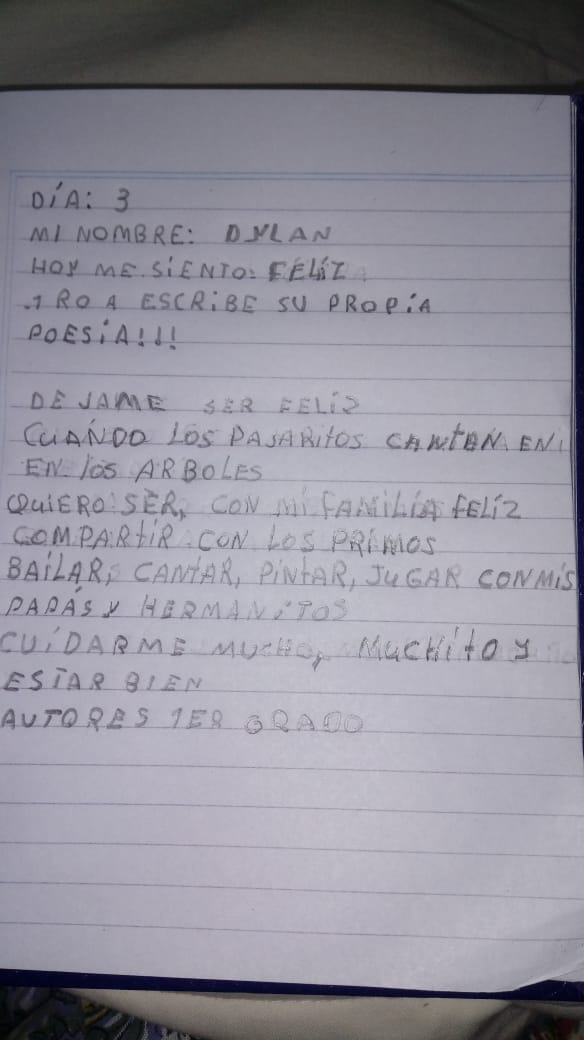 DÍA: 3
MI NOMBRE: DYLAN
HOY ME SIENTO: FELÍZ
.1 RO A ESCRIBE SU PROPIA
POESÍA!!!
DEJAME SER FELIZ
CUANDO LOS PAJARITOS CANTAN EN
EN LOS ARBOLES
QUIERO SER, CON MI FAMILIA FELÍZ
COMPARTIR CON LOS PRIMOS
BAILAR, CANTAR, PINTAR, JUGAR CON MIS
PAPÁS Y HERMANITOS
CUIDARME MUCHO, MUCHITO Y
ESTAR BIEN
AUTORES 1ER GRADO